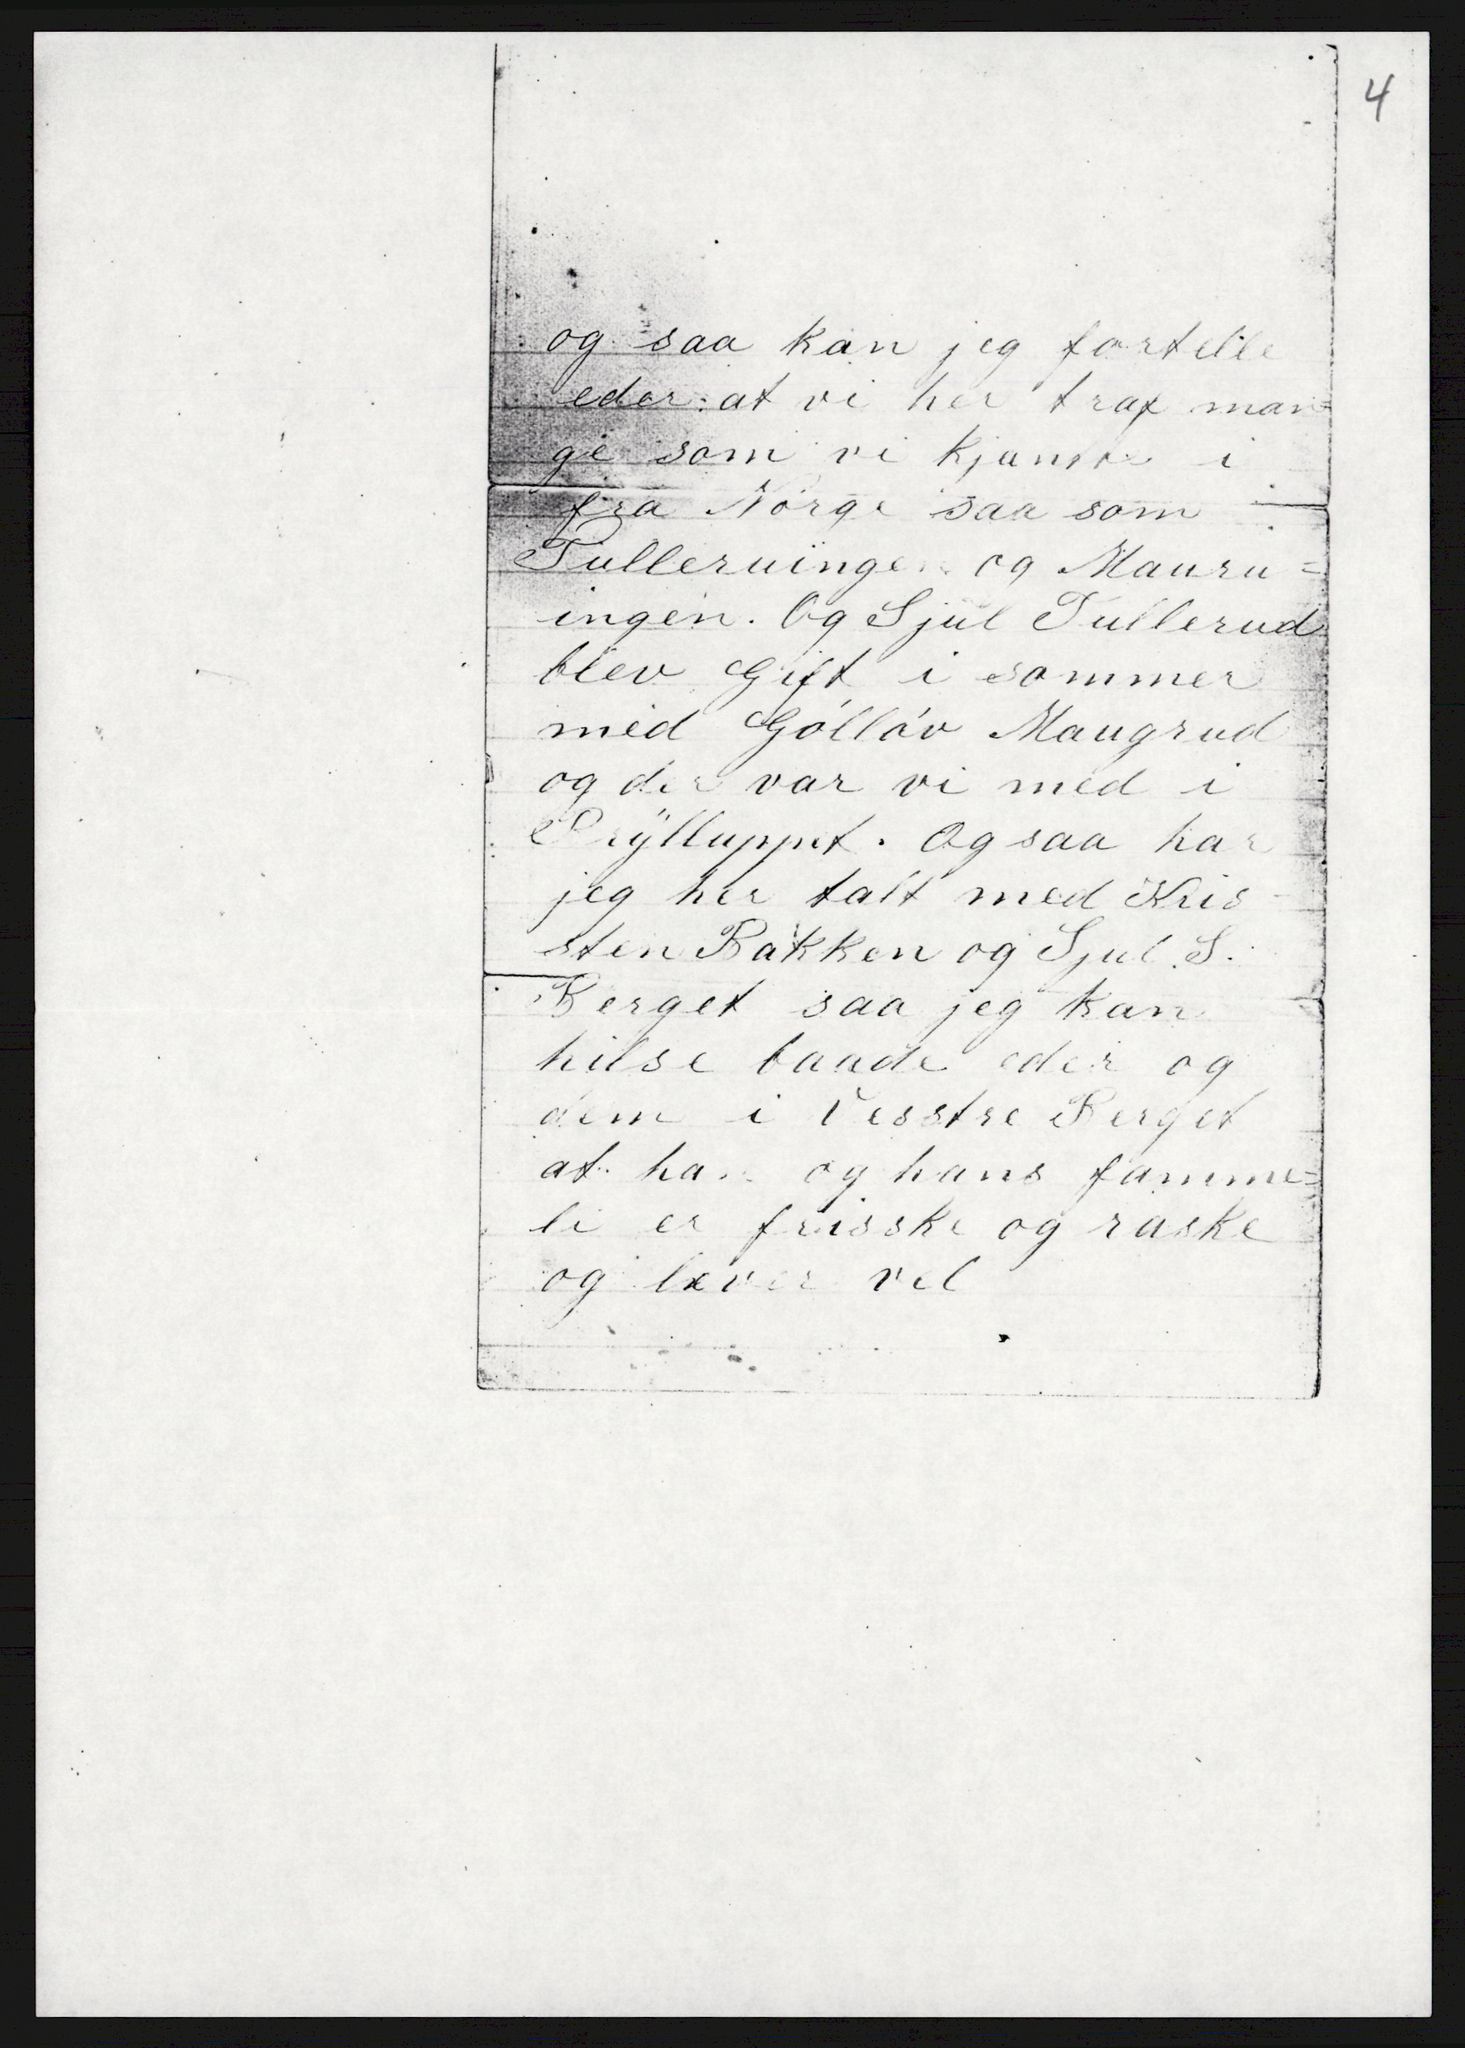 4
og saa kan jeg fortelle
eder at vi her traf man=
ge som vi kjaner i
fra Norge saa som
Tulleruingen og Mauru=
ingen. Og Sjul Tullerud
blev Gift i sommer
med Gólláv Maugrud
og der var vi med i
Brÿlluppet. Og saa har
jeg her talt med Kris-
sten Bakken og Sjul. S.
Berget saa jeg kan
hilse baade eder og
dem i Vesstre Berget
at han og hans famme=
li er frisske og raske
og lever vel